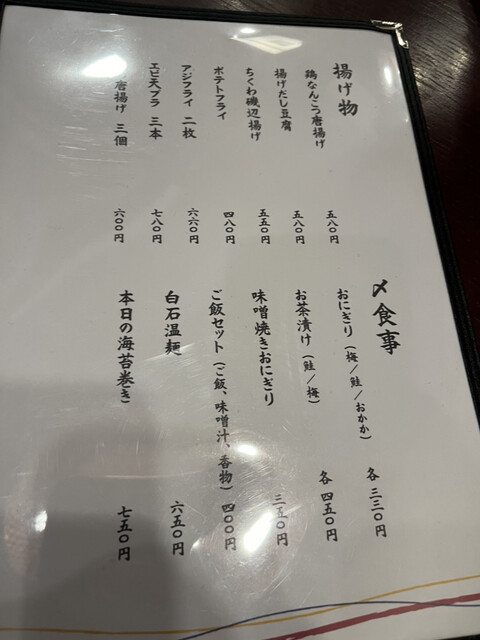 揚げ物
鶏なんこつ唐揚げ 五八〇円
揚げだし豆腐 五八〇円
ちくわ磯辺揚げ 五五〇円
ポテトフライ 四八〇円
アジフライ 二枚 六六〇円
エビ天プラ 三本 七八〇円
唐揚げ 三個 六〇〇円
〆食事
おにぎり（梅／鮭／おかか） 各 三三〇円
お茶漬け（鮭／梅） 各 四五〇円
味噌焼きおにぎり 三五〇円
ご飯セット（ご飯、味噌汁、香物） 四〇〇円
白石温麺 六五〇円
本日の海苔巻き 七五〇円